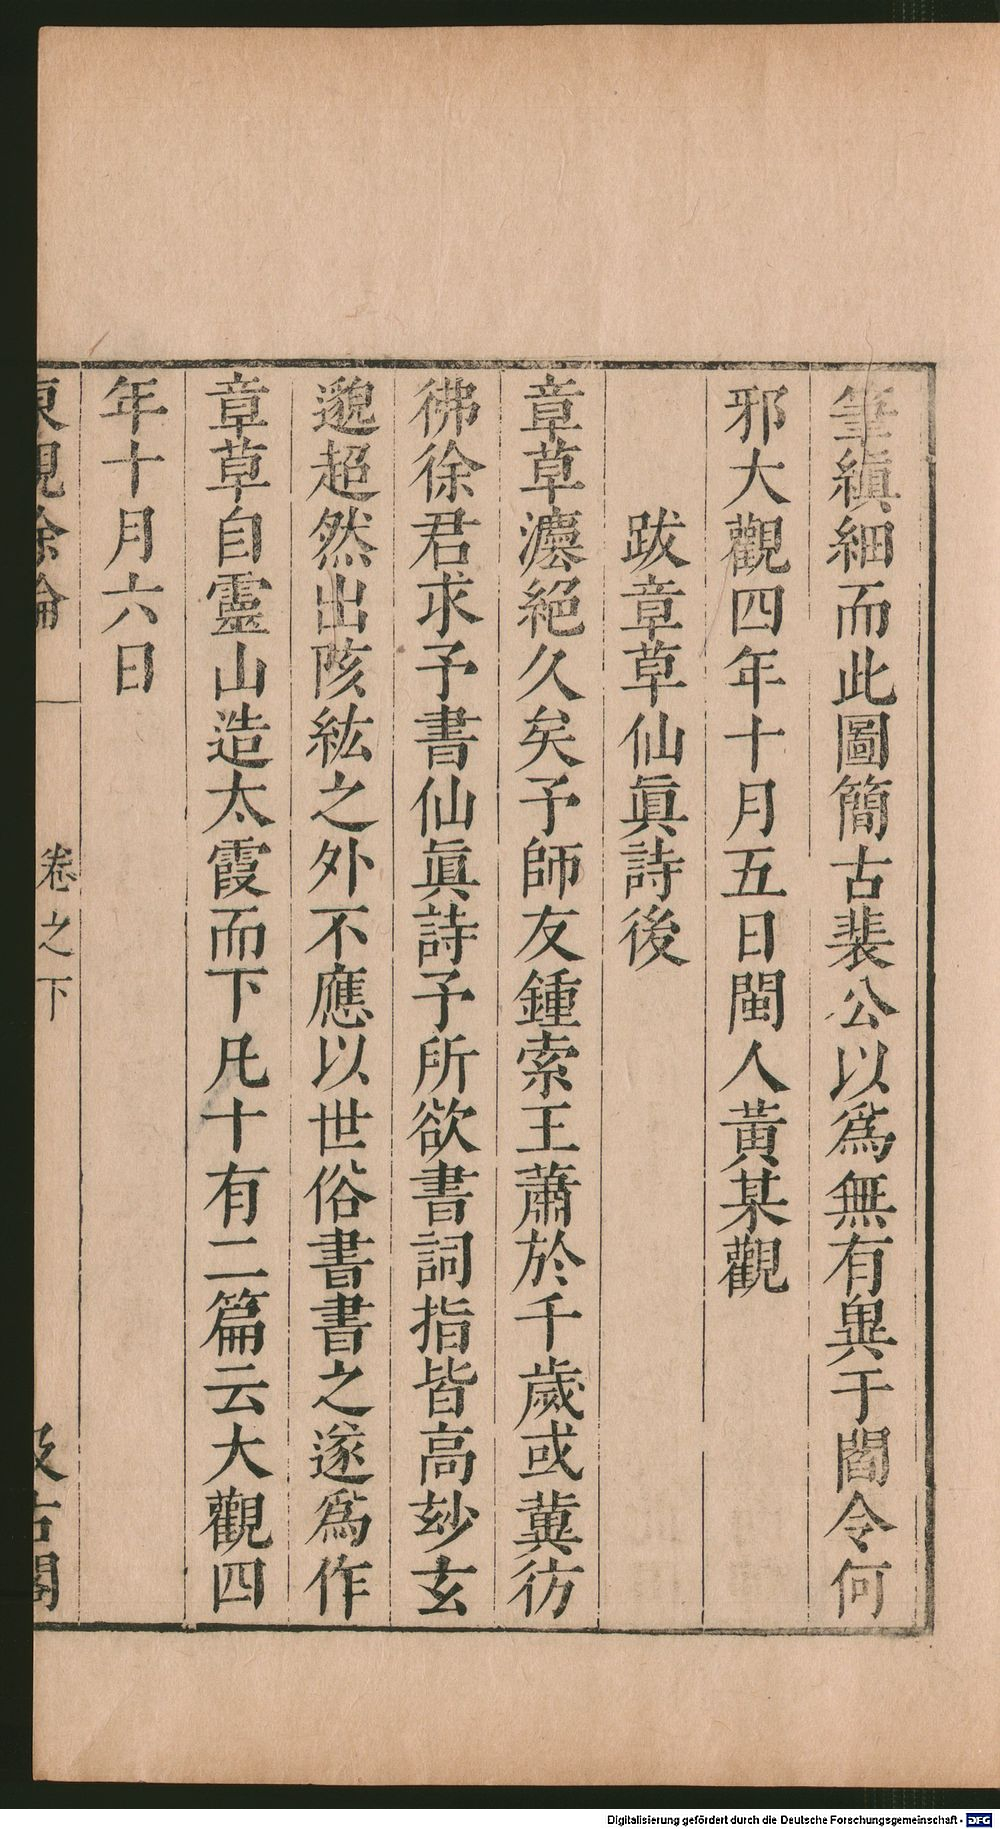 筆縝細而此圖簡古裴公以爲無有與于閻令何
邪大觀四年十月五日閩人黃某觀
跋章草仙眞詩後
章草灋絕久矣予師友鍾索王蕭於千歲或冀彷
彿徐君求予書仙眞詩予所欲書詞指皆高玅玄
邈超然出陔紘之外不應以世俗書書之遂爲作
章草自靈山造太霞而下凡十有二篇云大觀四
年十月六日
東觀餘論
卷之下
汲古閣
Digitalisierung gefördert durch die Deutsche Forschungsgemeinschaft - DFG